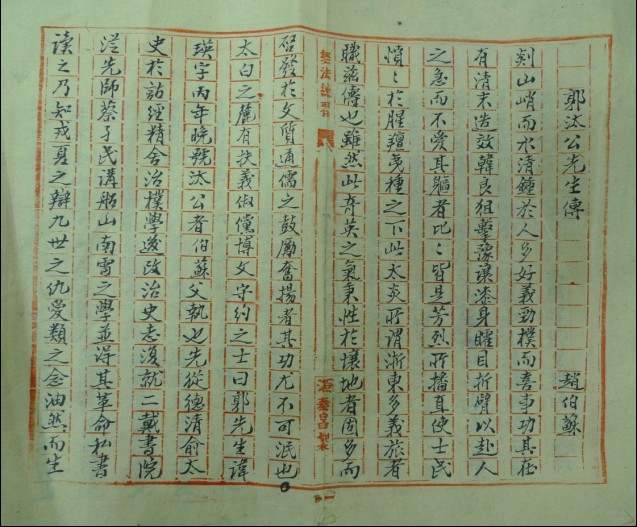 郭汰公先生傳
趙伯蘇
剡山峭而水清鍾於人多好義勁樸而喜事功其在
有清末造效韓良狙擊豫讓漆身矐目折臂以赴人
之急而不愛其軀者比〻皆是芳烈所播直使士民
憤〻於腥羶曳種之下此太炎所謂浙東多義旅者
職茲傳也雖然此奇英之氣秉性於壤地者固多而
啓發於文質通儒之鼓勵奮揚者其功尤不可泯也
太白之麓有扶義俶儻博文守約之士曰郭先生諱
瑛字丙年晚號汰公者伯蘇父執也先從德清俞太
史於詁經精舍治樸學遂政治史志復就二戴書院
從先師蔡子民講船山南雷之學並得其革命私書
读之乃知戎夏之辯九世之仇愛類之念油然而生